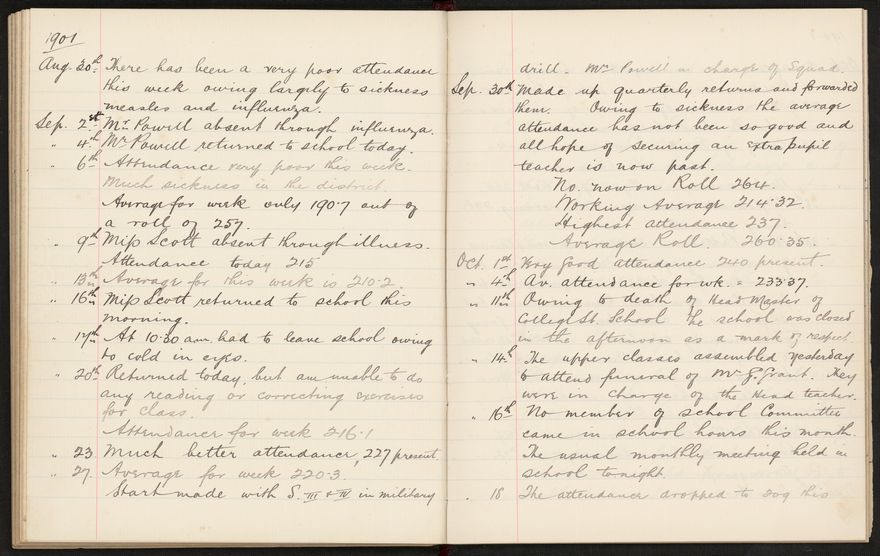 1901
Aug. 30th There has been a very poor attendance
this week owing largely to sickness
measles and influenza.
Sep. 2nd Mr. Powell absent through influenza.
" 4th Mr Powell returned to school today.
" 6th Attendance very poor this week.
Much sickness in the district.
Average for week only 190.7 out of
a roll of 257.
" 9th Miss Scott absent through illness.
Attendance today 215
" 13th Average for this week is 210.2.
" 16th Miss Scott returned to school this
morning.
" 17th At 10.30 a.m. had to leave school owing
to cold in eyes.
" 20th Returned today, but am unable to do
any reading or correcting exercises
for class.
Attendance for week 216.1
" 23 Much better attendance, 227 present.
" 27. Average for week 220.3.
Start made with S. III & IV in military
drill. Mr Powell in charge of Squad.
Sep. 30th Made up quarterly returns and forwarded
them. Owing to sickness the average
attendance has not been so good and
all hope of securing an extra pupil
teacher is now past.
No. now on Roll 264.
Working Average 214.32.
Highest attendance 237.
Average Roll. 260.35.
Oct. 1st Very good attendance 240 present.
" 4th Av. attendance for wk. = 233.37.
" 11th Owing to death of Head Master of
College St. School the school was closed
in the afternoon as a mark of respect.
" 14th The upper classes assembled yesterday
to attend funeral of Mr G. Grant. They
were in charge of the Head teacher.
" 16th No member of school Committee
came in school hours this month.
The usual monthly meeting held in
school tonight.
" 18 The attendance dropped to 209 this